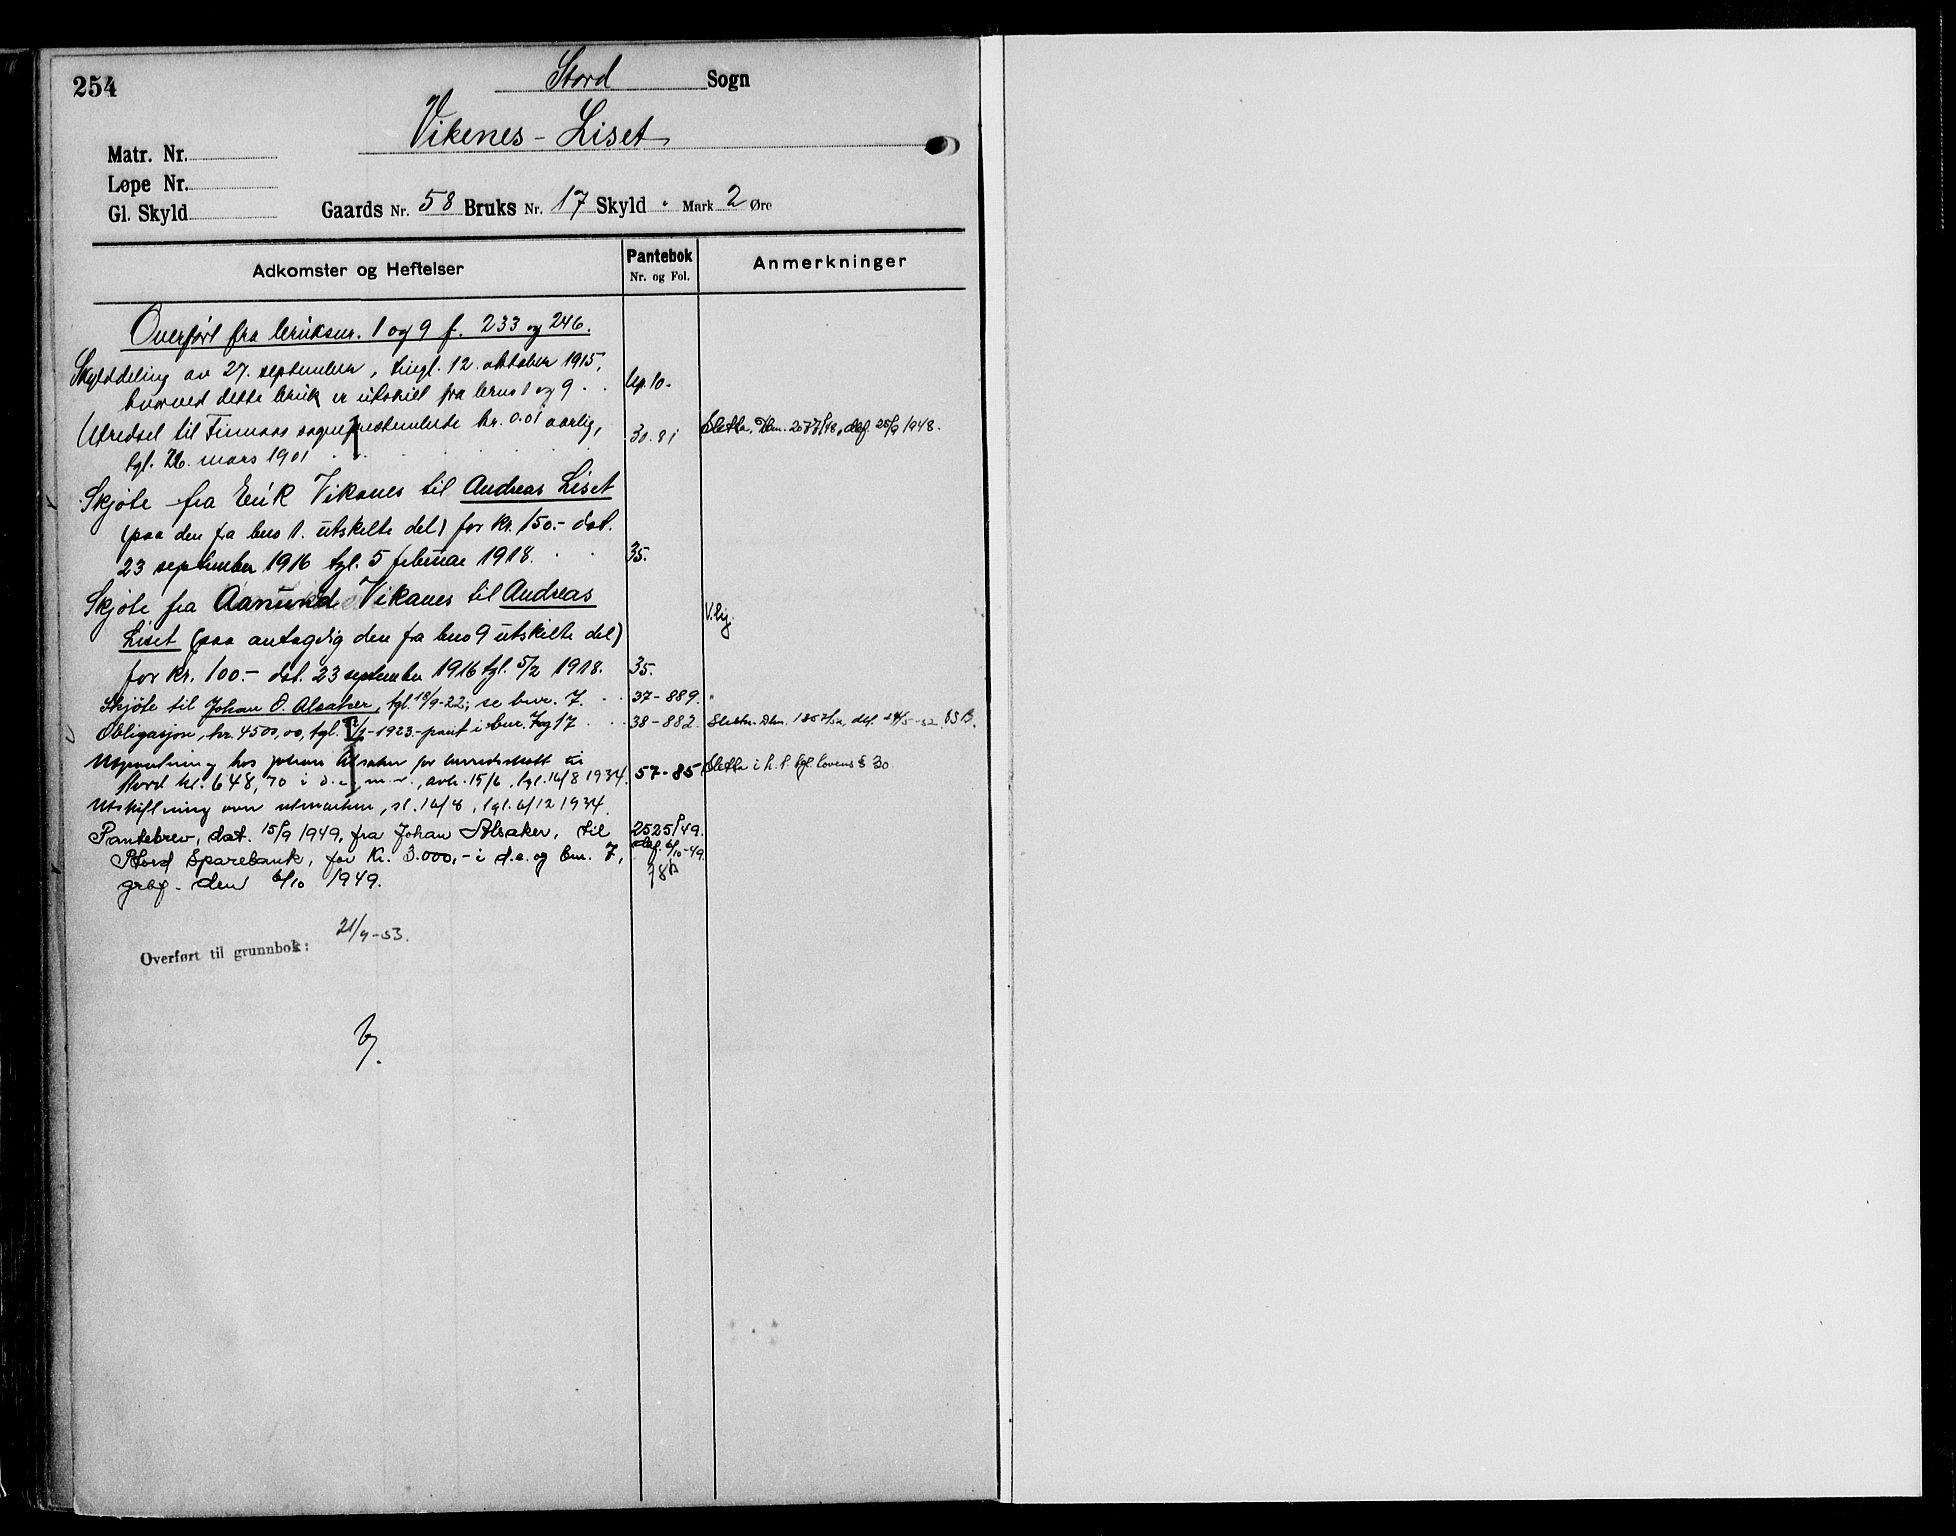 254
Stord Sogn
Vikenes - Liset
Matr. Nr.
Løpe Nr.
Gl. Skyld
Gaards Nr. 58 Bruks Nr. 17 Skyld " Mark 2 Øre
Adkomster og Heftelser Pantebok Nr. og Fol. Anmerkninger
Overført fra bruksnr. 1 og 9 f. 233 og 246.
Skylddeling av 27. september, tingl. 12. oktober 1915,
hvorved dette bruk er utskilt fra brno 1 og 9 . . 10.
Utredsel til Finnaas sogneprestembede kr. 0.01 aarlig, 30.81 Slettet, Dbm. 2077/48, def. 25/9 1948.
tgl. 26. mars 1901
Skjøte fra Erik Vikanes til Andreas Liset
(paa den fra bno 1. utskilte del) for kr. 150.- dat.
23 september 1916 tgl. 5 februar 1918. 35.
Skjøte fra Aamund Vikanes til Andreas
Liset (paa antagelig den fra bno 9 utskilte del)
for kr. 100.- dat. 23 september 1916 tgl. 5/2 1918. 35.
Skjøte til Johan O. Alsaker, tgl. 18/9-22; se bnr. 7. 37-889. "
Obligasjon, kr. 4500,00, tgl. 1923 - pant i bnr. 7 og 17 38-882.
Utpantning hos Johan Alsaker for herredsskatt til
Stord kl. 648,70 i d.e. m.v., avh. 15/6, tgl. 16/8 1934. 57-85 Slettet i h.t. tgl. lovens § 30
Utskiftning over utmarken, sl. 16/8, tgl. 6/12 1934.
Pantebrev, dat. 15/9 1949, fra Johan Alsaker, til 2525/49.
Stord Sparebank, for kr. 3.000,- i d.e. og bnr. 7, def. 6/10-49.
grbf. den 6/10 1949.
Overført til grunnbok: 21/9-53.